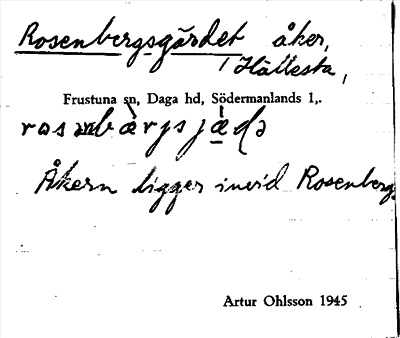 Rosenbergsgärdet åker,
i Hällesta,
Frustuna sn, Daga hd, Södermanlands l,.
Åkern ligger invid Rosenberg.
Artur Ohlsson 1945